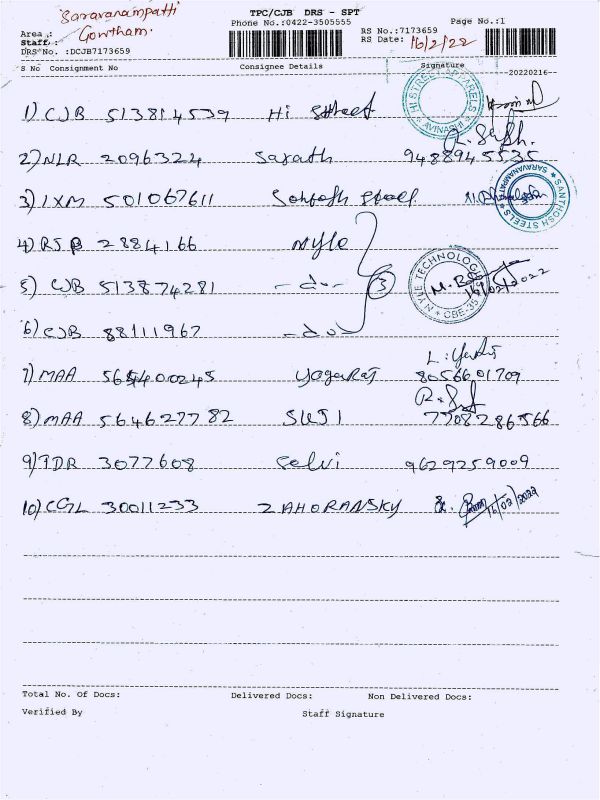 Saravanampatti
TPC/CJB DRS - SPT
Area : Gowtham.
Phone No.:0422-3505555
Page No.:1
Staff:
RS No.:7173659
RS Date: 16/2/22
DRS No. :DCJB7173659
S No Consignment No Consignee Details Signature
20220216-
1) CJB 513814539 Hi Street
HI STREET APPARELS
AVINASHI
2) NLR 2096324 Sarath 9488945535
3) IXM 501067611 Santosh Steel
SANTHOSH STEELS
SARAVANAMPATTI
4) RSB 2884166 Nyle
5) CJB 513874281 -do- 3
NYLE TECHNOLOGY
CBE-35
16/02/2022
6) CJB 88111967 -do-
7) MAA 564400245 Yogaraj 8056601709
8) MAA 564627782 SUJI 7708286566
9) TDR 3077608 Selvi 9629259009
10) CGL 30011233 ZAHORANSKY 16/02/2022
Total No. Of Docs: Delivered Docs: Non Delivered Docs:
Verified By Staff Signature